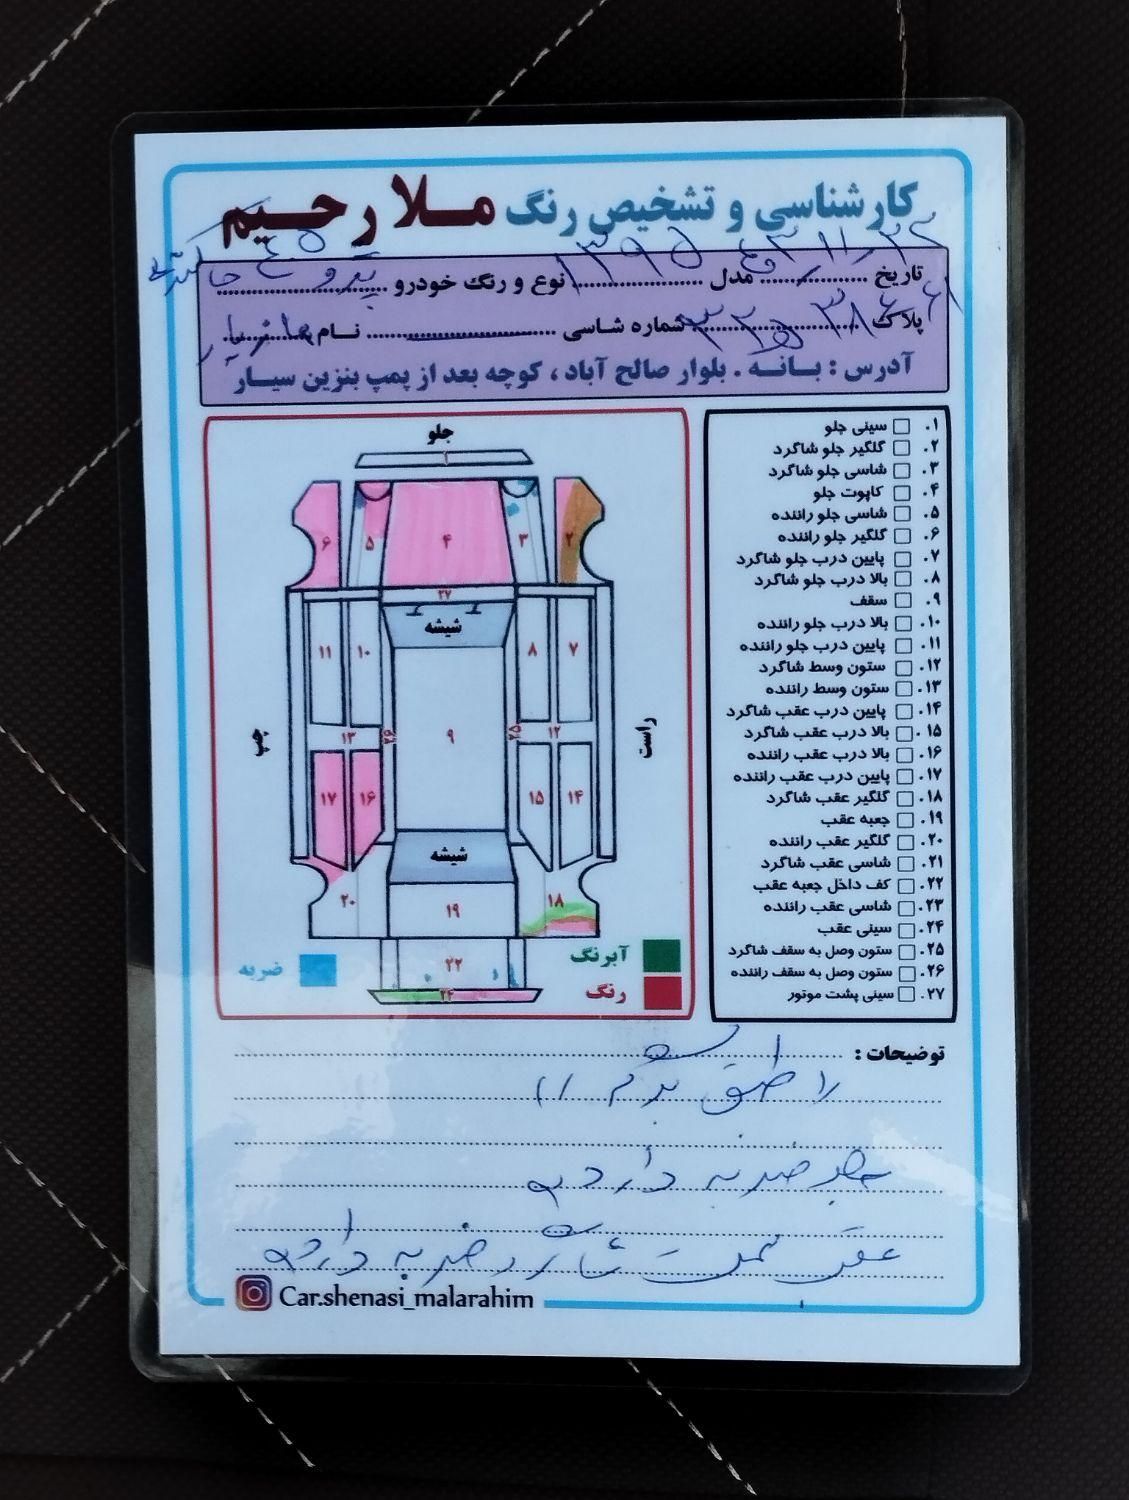 کارشناسی و تشخیص رنگ ملا رحیم
تاریخ مدل ۱۳۹۵ نوع و رنگ خودرو پژو
پلاک شماره شاسی نام
آدرس : بانه . بلوار صالح آباد ، کوچه بعد از پمپ بنزین سیار
جلو
۱
۶ ۵ ۴ ۳ ۲
۲۷
شیشه
۱۱ ۱۰ ۸ ۷
چپ ۱۳ ۲۶ ۹ ۲۵ ۱۲ راست
۱۷ ۱۶ ۱۵ ۱۴
شیشه
۲۰ ۱۹ ۱۸
۲۲
۲۴
ضربه
آبرنگ
رنگ
۱. سینی جلو
۲. گلگیر جلو شاگرد
۳. شاسی جلو شاگرد
۴. کاپوت جلو
۵. شاسی جلو راننده
۶. گلگیر جلو راننده
۷. پایین درب جلو شاگرد
۸. بالا درب جلو شاگرد
۹. سقف
۱۰. بالا درب جلو راننده
۱۱. پایین درب جلو راننده
۱۲. ستون وسط شاگرد
۱۳. ستون وسط راننده
۱۴. پایین درب عقب شاگرد
۱۵. بالا درب عقب شاگرد
۱۶. بالا درب عقب راننده
۱۷. پایین درب عقب راننده
۱۸. گلگیر عقب شاگرد
۱۹. جعبه عقب
۲۰. گلگیر عقب راننده
۲۱. شاسی عقب شاگرد
۲۲. کف داخل جعبه عقب
۲۳. شاسی عقب راننده
۲۴. سینی عقب
۲۵. ستون وصل به سقف شاگرد
۲۶. ستون وصل به سقف راننده
۲۷. سینی پشت موتور
توضیحات :
جلو ضربه دارد
عقب سمت شاگرد ضربه دارد
Car.shenasi_malarahim